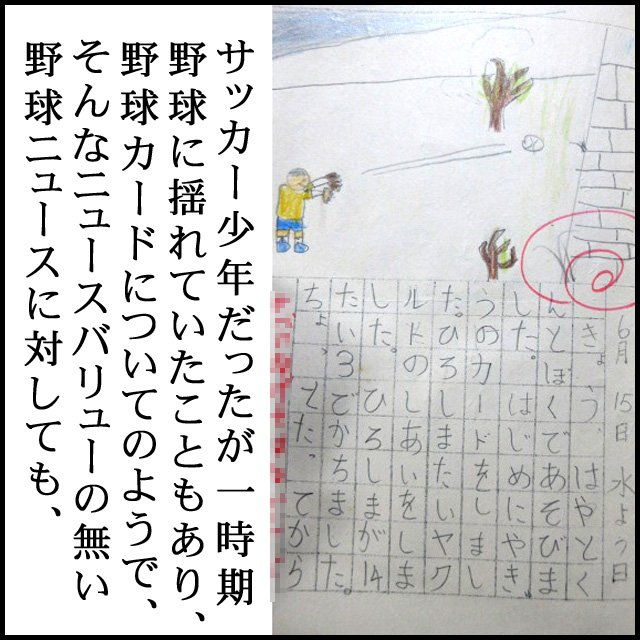 6月15日水よう日
きょう、はやとく
んとぼくであそびま
した。はじめにやき
うのカードをしまし
た。ひろしまたいヤク
ルドのしあいをしま
した。ひろしまが14
たい3でかちました。
ちょっとたってから
サッカー少年だったが一時期
野球に揺れていたこともあり、
野球カードについてのようで、
そんなニュースバリューの無い
野球ニュースに対しても、